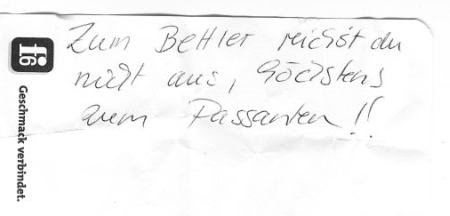 Zum Bettler reichst du
nicht aus, höchstens
zum Passanten!!
f6
Geschmack verbindet.